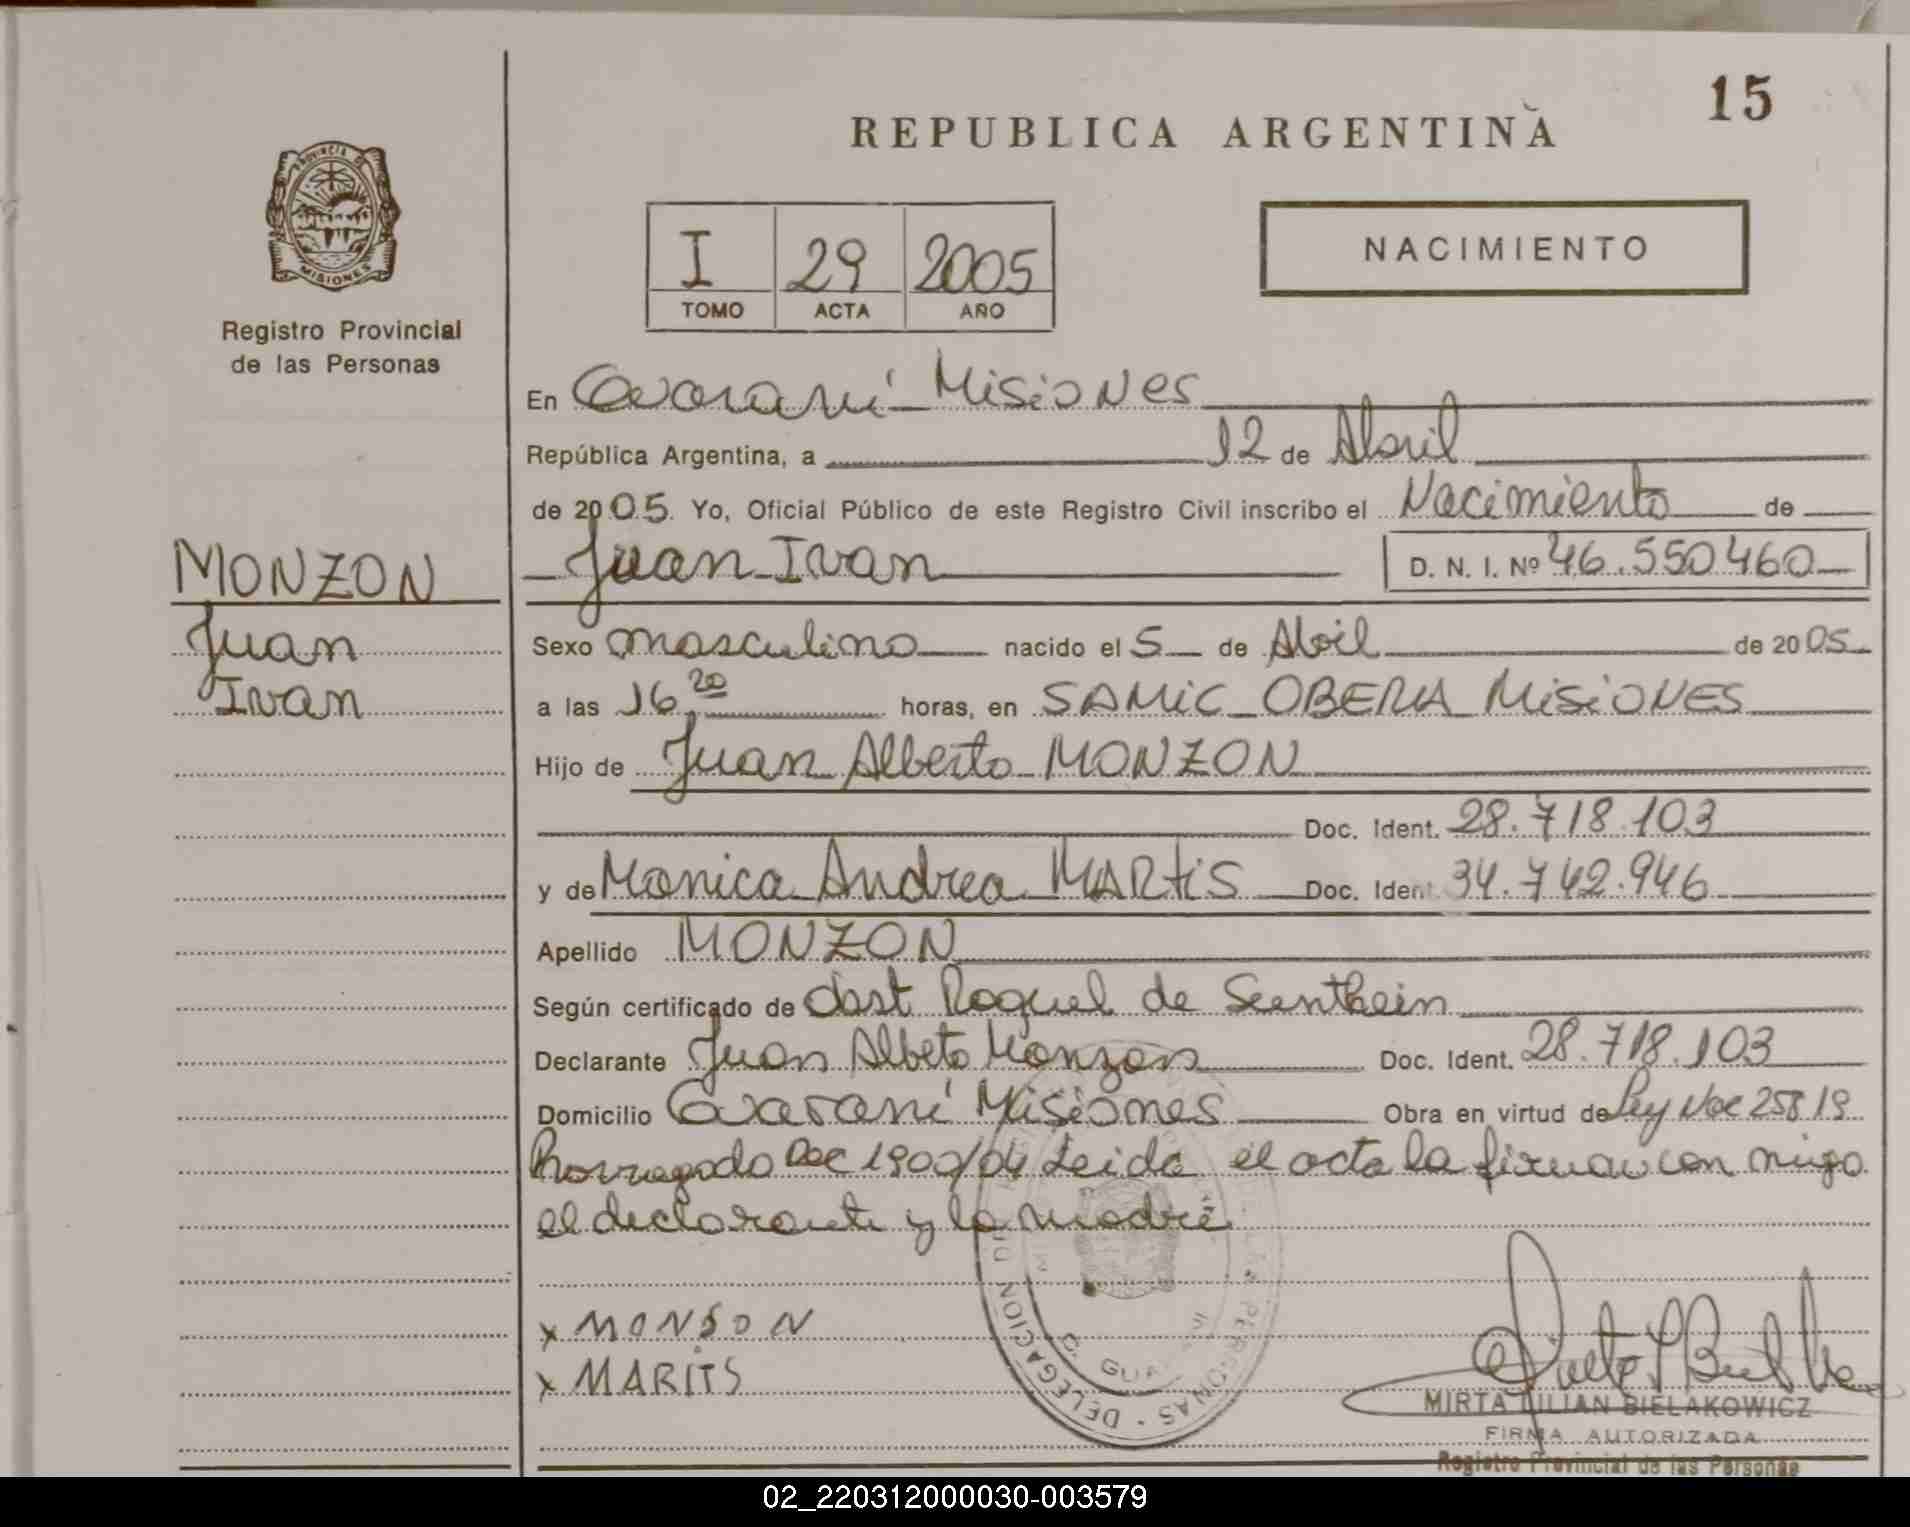 15
REPUBLICA ARGENTINA
PROVINCIA DE
MISIONES
Registro Provincial
de las Personas
I 29 2005
TOMO ACTA AÑO
NACIMIENTO
En Guaraní Misiones
República Argentina, a 12 de Abril
de 2005. Yo, Oficial Público de este Registro Civil inscribo el Nacimiento de
MONZON
Juan
Ivan
Juan Ivan D. N. I. Nº 46.550460
Sexo masculino nacido el 5 de Abril de 2005
a las 16,20 horas, en SAMiC OBERA MisiONES
Hijo de Juan Alberto MONZON
Doc. Ident. 28.718.103
y de Monica Andrea MARtiS Doc. Ident. 34.742.946
Apellido MONZON
Según certificado de Obst Raquel de
Declarante Juan Albeto Monzon Doc. Ident. 28.718.103
Domicilio Guaraní Misiones Obra en virtud de Ley Nac 25819
Prorrogado Dec 1900/04 Leida el acta la firman con migo
el declarante y la madre
x MONSON
x MARITS
PERSONAS · DELEGACION
MIRTA LILIAN BIELAKOWICZ
FIRMA AUTORIZADA
Registro Provincial de las Personas
02_220312000030-003579